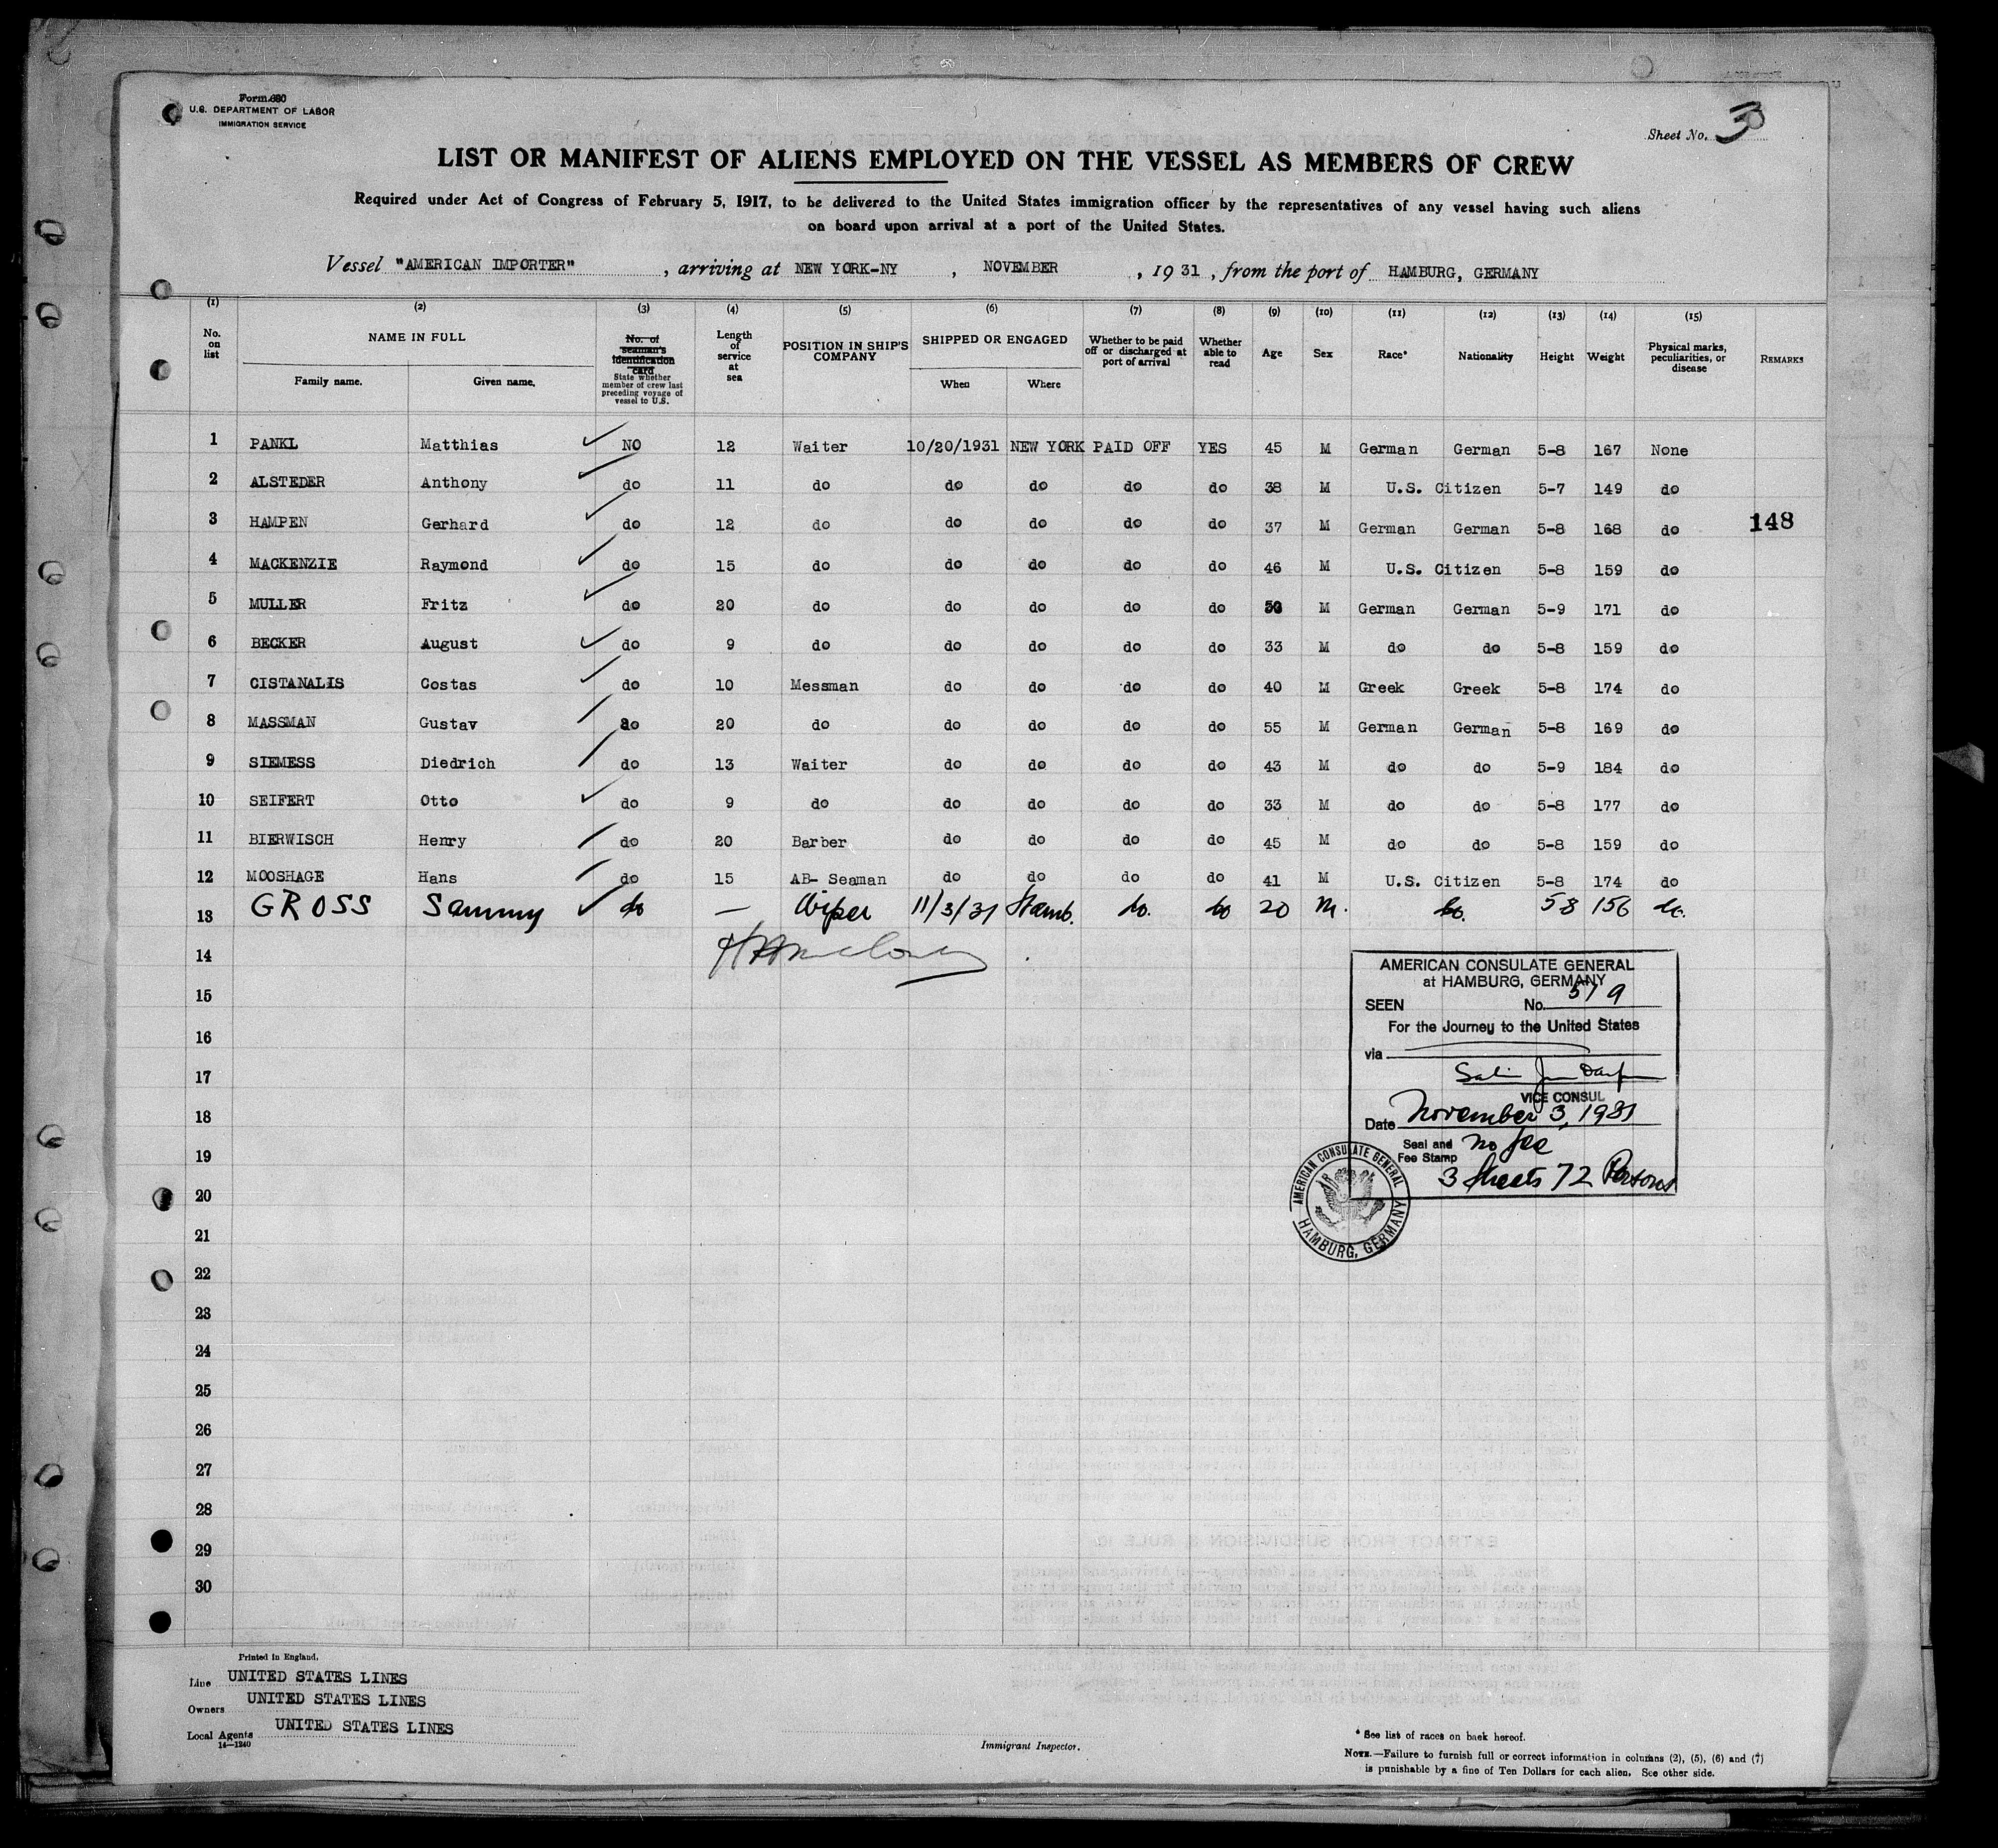 Form 680
U.S. DEPARTMENT OF LABOR
IMMIGRATION SERVICE
Sheet No. 3
LIST OR MANIFEST OF ALIENS EMPLOYED ON THE VESSEL AS MEMBERS OF CREW
Required under Act of Congress of February 5, 1917, to be delivered to the United States immigration officer by the representatives of any vessel having such aliens
on board upon arrival at a port of the United States.
Vessel "AMERICAN IMPORTER" , arriving at NEW YORK-NY , NOVEMBER , 1931 , from the port of HAMBURG, GERMANY
(1) (2) (3) (4) (5) (6) (7) (8) (9) (10) (11) (12) (13) (14) (15)
No. on list
NAME IN FULL
Family name. Given name.
No. of seaman's identification card
State whether member of crew last preceding voyage of vessel to U.S.
Length of service at sea
POSITION IN SHIP'S COMPANY
SHIPPED OR ENGAGED
When Where
Whether to be paid off or discharged at port of arrival
Whether able to read
Age
Sex
Race*
Nationality
Height
Weight
Physical marks, peculiarities, or disease
REMARKS
1 PANKL Matthias NO 12 Waiter 10/20/1931 NEW YORK PAID OFF YES 45 M German German 5-8 167 None
2 ALSTEDER Anthony do 11 do do do do do 38 M U.S. Citizen 5-7 149 do
3 HAMPEN Gerhard do 12 do do do do do 37 M German German 5-8 168 do 148
4 MACKENZIE Raymond do 15 do do do do do 46 M U.S. Citizen 5-8 159 do
5 MULLER Fritz do 20 do do do do do M German German 5-9 171 do
6 BECKER August do 9 do do do do do 33 M do do 5-8 159 do
7 CISTANALIS Costas do 10 Messman do do do do 40 M Greek Greek 5-8 174 do
8 MASSMAN Gustav do 20 do do do do do 55 M German German 5-8 169 do
9 SIEMESS Diedrich do 13 Waiter do do do do 43 M do do 5-9 184 do
10 SEIFERT Otto do 9 do do do do do 33 M do do 5-8 177 do
11 BIERWISCH Henry do 20 Barber do do do do 45 M do do 5-8 159 do
12 MOOSHAGE Hans do 15 AB- Seaman do do do do 41 M U.S. Citizen 5-8 174 do
13 GROSS Sammy do — Wiper 11/3/31 Hamb. do. do 20 M. do. 58 156 do.
14
15
16
17
18
19
20
21
22
23
24
25
26
27
28
29
30
AMERICAN CONSULATE GENERAL
at HAMBURG, GERMANY
SEEN No. 519
For the Journey to the United States
via
VICE CONSUL
Date November 3, 1931
Seal and Fee Stamp no fee
3 Sheets 72 Persons
AMERICAN CONSULATE GENERAL
HAMBURG, GERMANY
Printed in England.
Line UNITED STATES LINES
Owners UNITED STATES LINES
Local Agents UNITED STATES LINES
14—1240
Immigrant Inspector.
* See list of races on back hereof.
NOTE.—Failure to furnish full or correct information in columns (2), (5), (6) and (7)
is punishable by a fine of Ten Dollars for each alien. See other side.